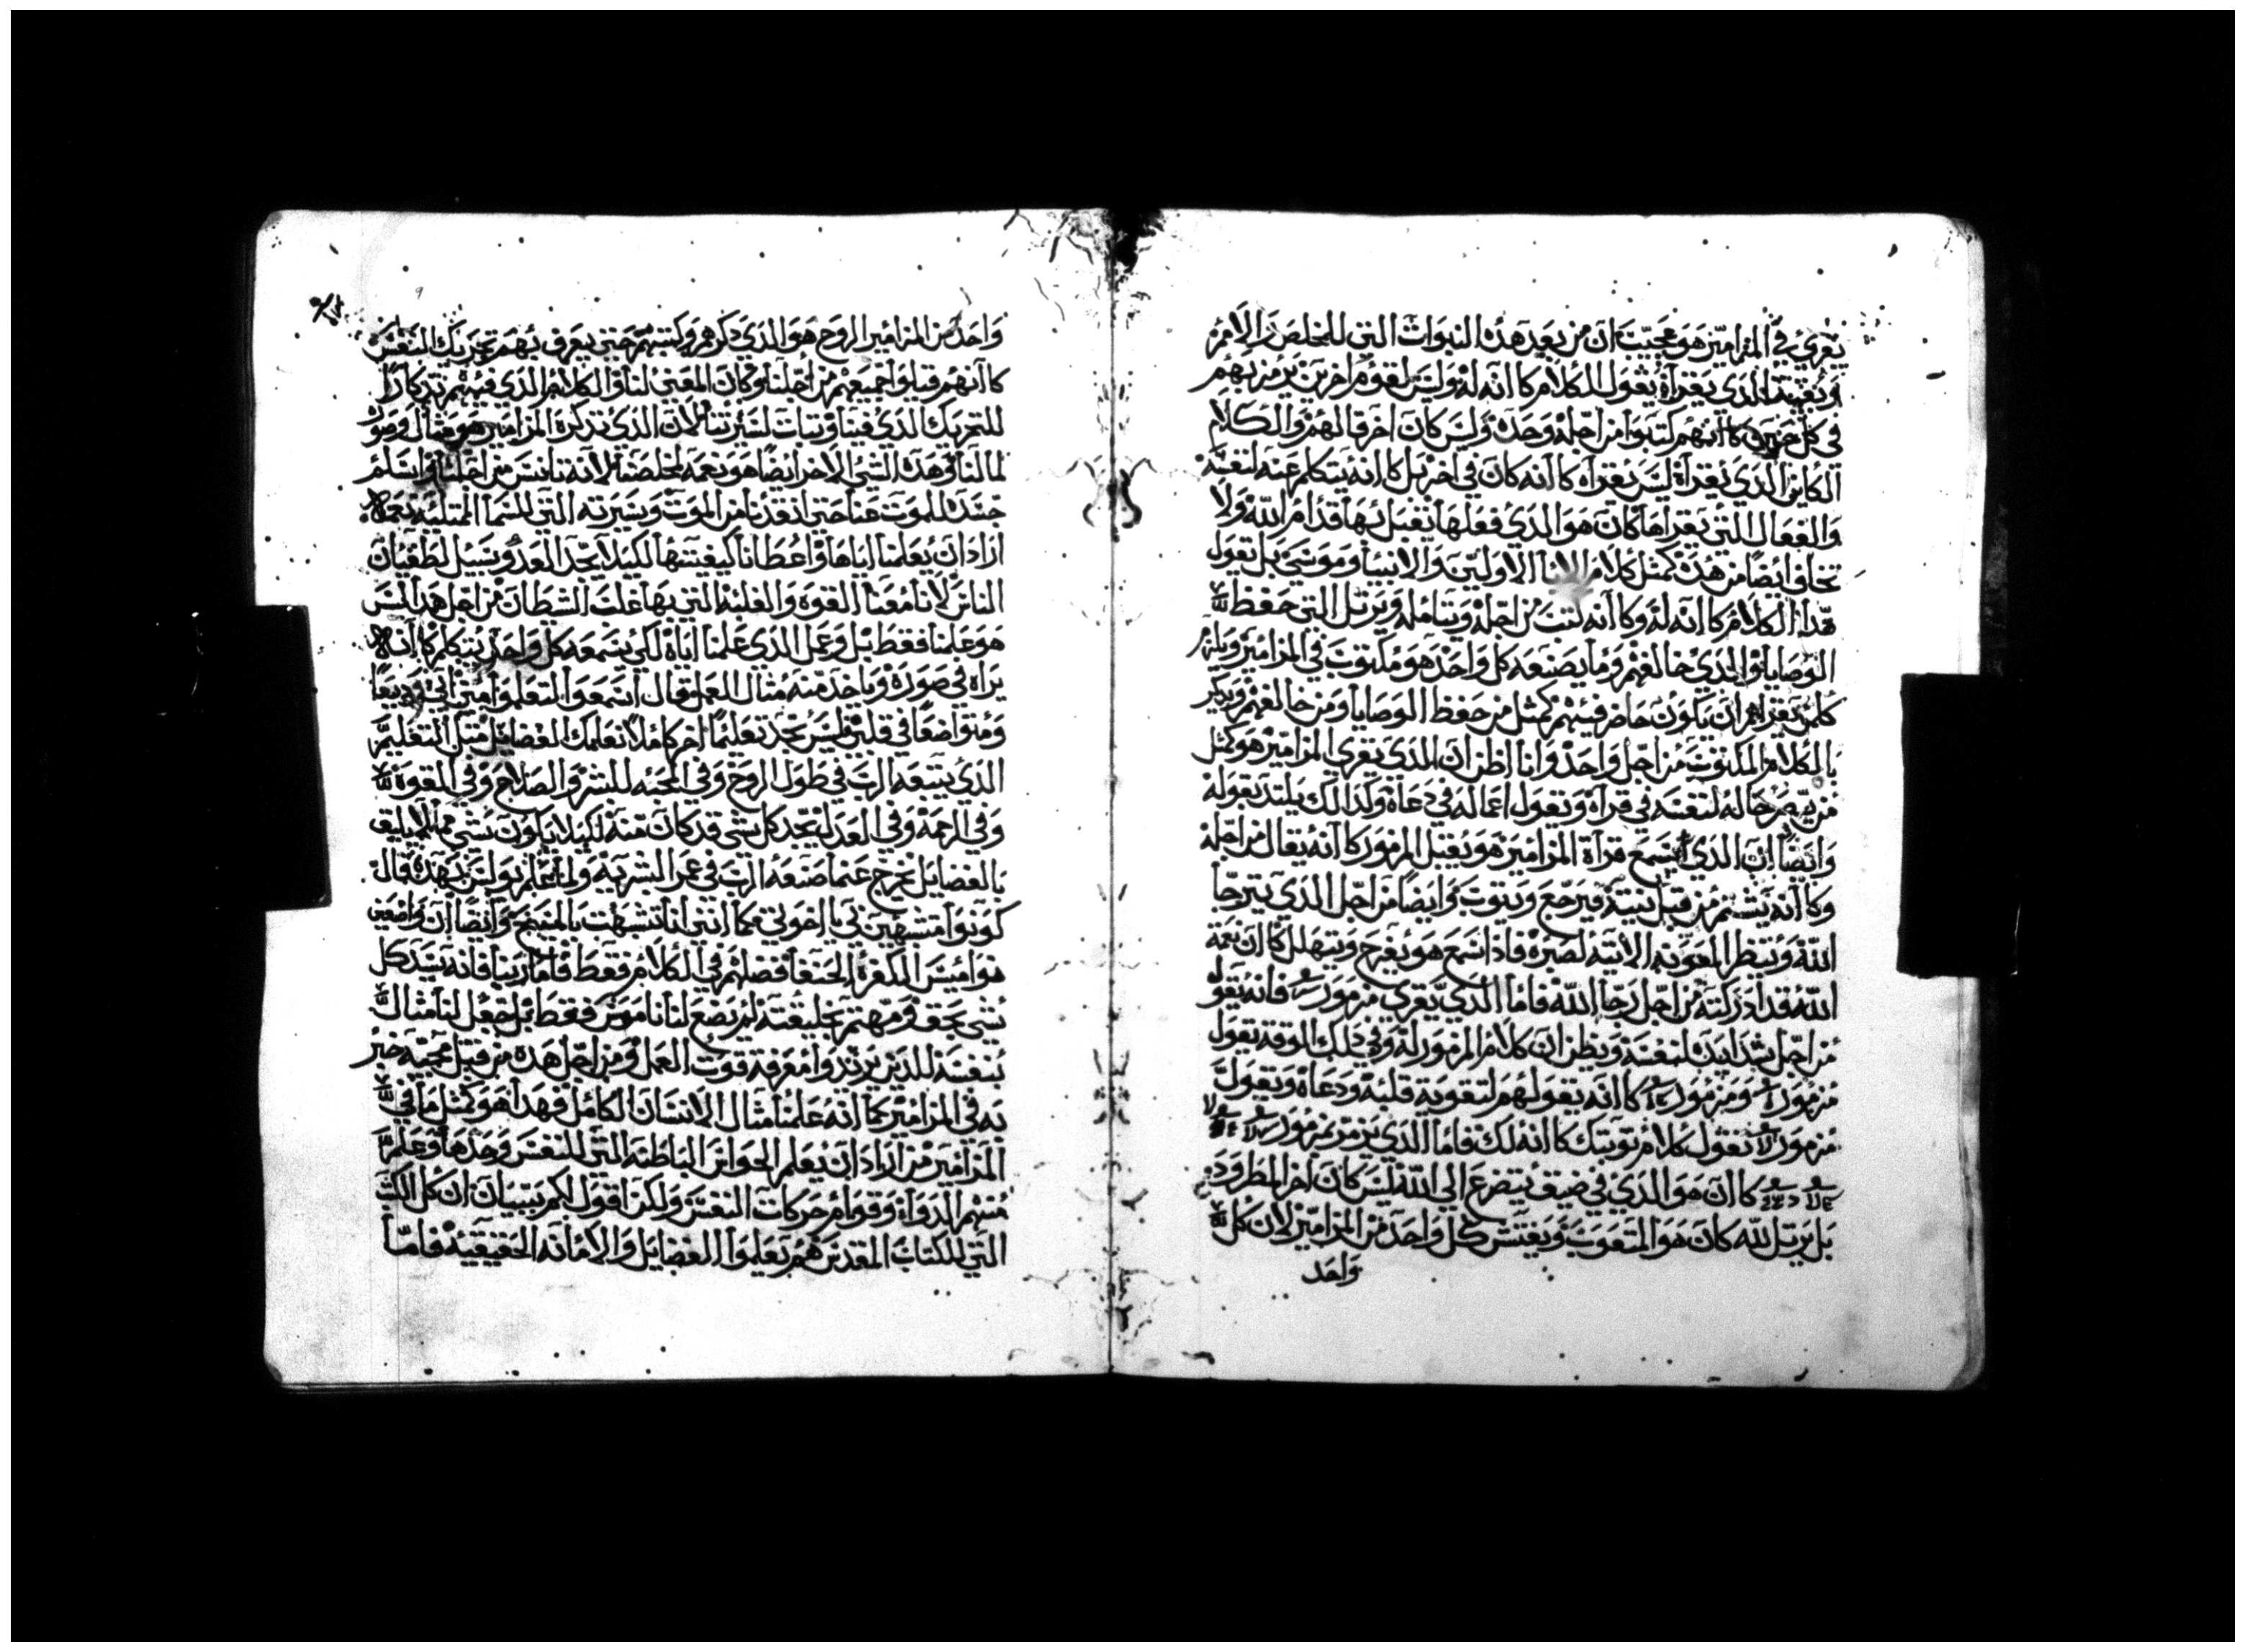 يقرئ في المزامير هو عجيب ان من بعد هذه النبوات التي للمخلص والامم
وبقية الذي يقرأه يقول الكلام كاانه له وليس لقوم اخرين يرمز بهم
في كل حين كاانهم كتبوا من اجله وحده وليس كان اخر قالهم والكلام
الكاين الذي يقرأه ليس يقراه كاانه كان في اخر بل كاانه يتكلم عنه لنفسه
والفعال التي يقراها كان هو الذي فعلها يقبل بها قدام الله ولا
تخاف ايضا من هذه كمثل كلام الابا الاولين والانبيا وموسي بل تقول
هدا الكلام كاانه له وكاانه كتب من اجله ويتامله ويرتل التي حفظ
الوصايا والذي خالفهم وما يصنعه كل واحد هو مكتوب في المزامير ويلزم
كلمن يقراهم ان يكون حاضر فيهم كمثل من حفظ الوصايا ومن خالفهم ويدكر
بالكلام المكتوب من اجل واحد وانا اظن ان الذي يقري المزامير هو كمثل
من يبصر حاله لنفسه في قرآه وتقول اعماله في دعاه ولذالك يلتد بقوله
وايضا ان الذي يسمع قرأة المزامير هو يقبل المزمور كاانه يقال من اجله
وكاانه يشتم من قبل نيته فيرجع ويتوب وايضا من اجل الذي يترجا
الله وينتظر المعونه الاتيه لصبره فاذا سمع هو يفرح ويتهلل كاان نعمة
الله قد ادركته من اجل رجا الله فاما الذي يقري مزمور فانه يقول
من اجل شدايده لنفسه ويظن ان كلام المزمور له وفي ذلك الوقت تقول
مزمور ومزمور كاانه يقولهم لتقوية قلبه ودعاه ويقول
مزمور تقول كلام توبتك كاانه لك فاما الذي يرمز بمزمور
كاان هو الذي في ضيق يتضرع الي الله ليس كان اخر المطرود
بل يرتل لله كان هو المتعوب ويفتش كل واحد من المزامير لان كل
واحد
واحد من المزامير الروح هو الذي دكرهم وكتبهم حتي يعرف بهم تحريك النفس
كاانهم قيلوا جميعهم من اجلنا وكان المعني لنا والكلام الذي فيهم تدكارا
للتحريك الذي فينا وتبات لسيرتنا لان الذي تدكره المزامير هو مثال وصور
لما لنا وهذه الشي الاخر ايضا هو نعمه لمخلصنا لانه تانس من اجلنا واسلم
جسده للموت عنا حتي انقدنا من الموت وسيرته التي للسما الممتليه نعمه
اراد ان يعلمنا اياها واعطانا كيفيتها لكيلا يجد العدو سبيل لطغيان
الناس لانا معنا القوه والغلبه التي بها غلب الشيطان من اجل هدا ليس
هو علمنا فقط بل وعمل الذي علمنا اياه لكي يسمعه كل واحد يتكلم كاانه
يراه في صورة وياخد منه مثال العمل وقال اسمعوا التعلموا مني اني وديعا
ومتواضعا في قلبي وليس تجد تعليما اخر كاملا تعلمك الفضايل مثل التعليم
الذي يتبعه الرب في طول الروح وفي المحبه للبشر والصلاح وفي القوة
وفي الرحمة وفي العدل تجد كل شي قد كان منه لكيلا يكون شي مما لا يليق
بالفضايل يخرج عنما صنعه الرب في عمر البشريه ولما علم بولس بهده قال
كونوا متشبهين بي يا اخوتي كما انني انا تشبهت بالمسيح وايضا ان واضعين
نواميس الكفرة الحنفا فضلهم في الكلام فقط فاما ربنا فانه سيد كل
شي بحق ومهتم بخليقته لم يضع لنا ناموس فقط بل جعل لنا مثال
بنفسه للذين يريدوا معرفة قوت العمل ومن اجل هده من قبل مجيه خبر
به في المزامير كما انه علمنا مثال الانسان الكامل فهدا هو كمثل ما في
المزامير من اراد ان يعلم الحواس الباطنه التي للنفس وحدها وعلم
منهم الدواء وقوام حركات النفس ولكن اقول لكم ببيان ان كل الكتب
التي للكتاب المقدس هم تعلموا الفضايل والامانه الحقيقيه فاما